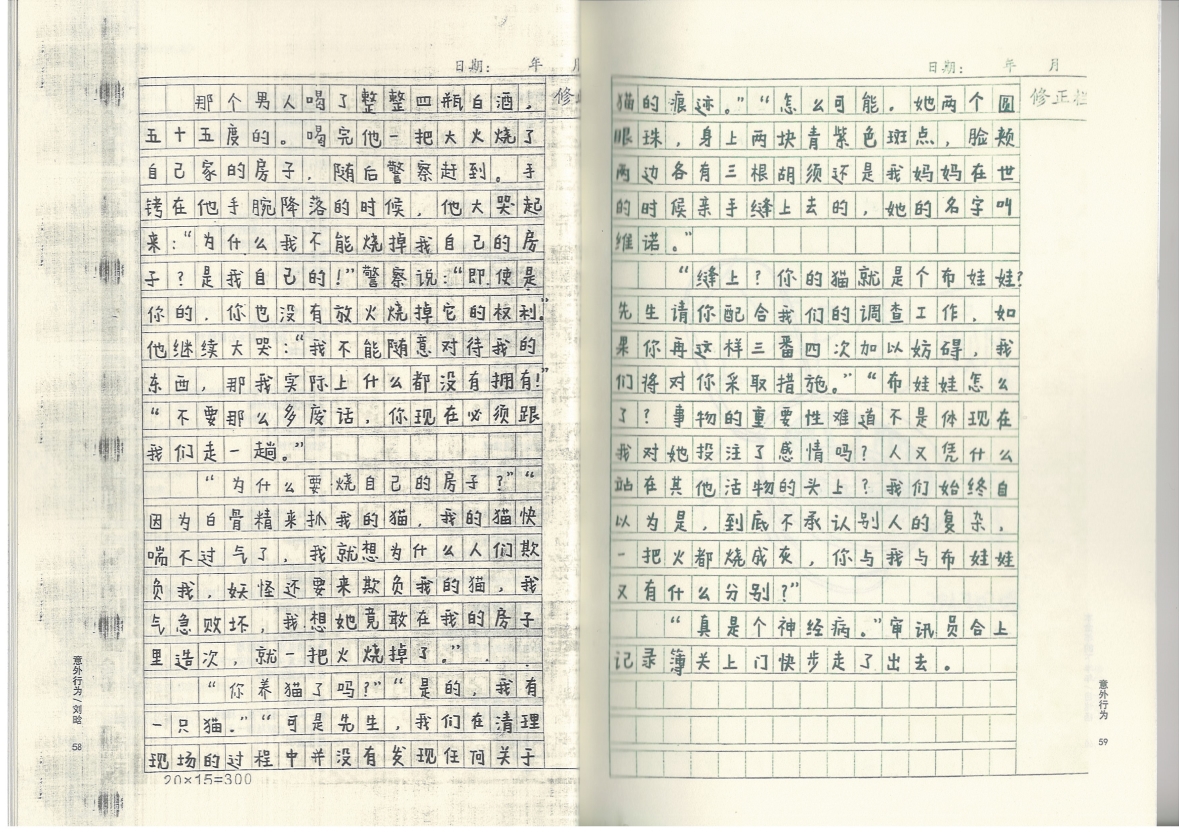 日期： 年 月
修
那个男人喝了整整四瓶白酒，
五十五度的。喝完他一把大火烧了
自己家的房子，随后警察赶到。手
铐在他手腕降落的时候，他大哭起
来：“为什么我不能烧掉我自己的房
子？是我自己的！”警察说：“即使是
你的，你也没有放火烧掉它的权利。”
他继续大哭：“我不能随意对待我的
东西，那我实际上什么都没有拥有！”
“不要那么多废话，你现在必须跟
我们走一趟。”
“为什么要烧自己的房子？”“
因为白骨精来抓我的猫，我的猫快
喘不过气了，我就想为什么人们欺
负我，妖怪还要来欺负我的猫，我
气急败坏，我想她竟敢在我的房子
里造次，就一把火烧掉了。”
“你养猫了吗？”“是的，我有
一只猫。”“可是先生，我们在清理
现场的过程中并没有发现任何关于
20×15=300
意外行为/刘晗
58
日期： 年 月
修正栏
猫的痕迹。”“怎么可能，她两个圆
眼珠，身上两块青紫色斑点，脸颊
两边各有三根胡须还是我妈妈在世
的时候亲手缝上去的，她的名字叫
维诺。”
“缝上？你的猫就是个布娃娃？
先生请你配合我们的调查工作，如
果你再这样三番四次加以妨碍，我
们将对你采取措施。”“布娃娃怎么
了？事物的重要性难道不是体现在
我对她投注了感情吗？人又凭什么
站在其他活物的头上？我们始终自
以为是，到底不承认别人的复杂，
一把火都烧成灰，你与我与布娃娃
又有什么分别？”
“真是个神经病。”审讯员合上
记录簿关上门快步走了出去。
意外行为
59